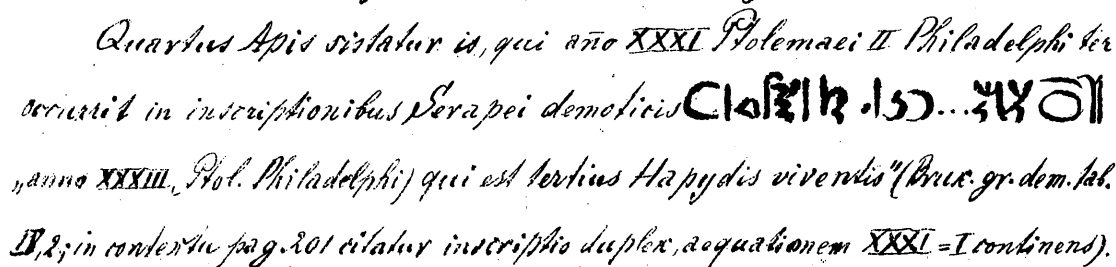 Quartus Apis sistatur is, qui año XXXI Ptolemaei II Philadelphi ter
occurrit in inscriptionibus Serapei demoticis
„anno XXXIII, Ptol. Philadelphi) qui est tertius Hapydis viventis" (Brux. gr. dem. tab.
IV, 2; in contextu pag. 201 citatur inscriptio duplex, aequationem XXXI = I continens).